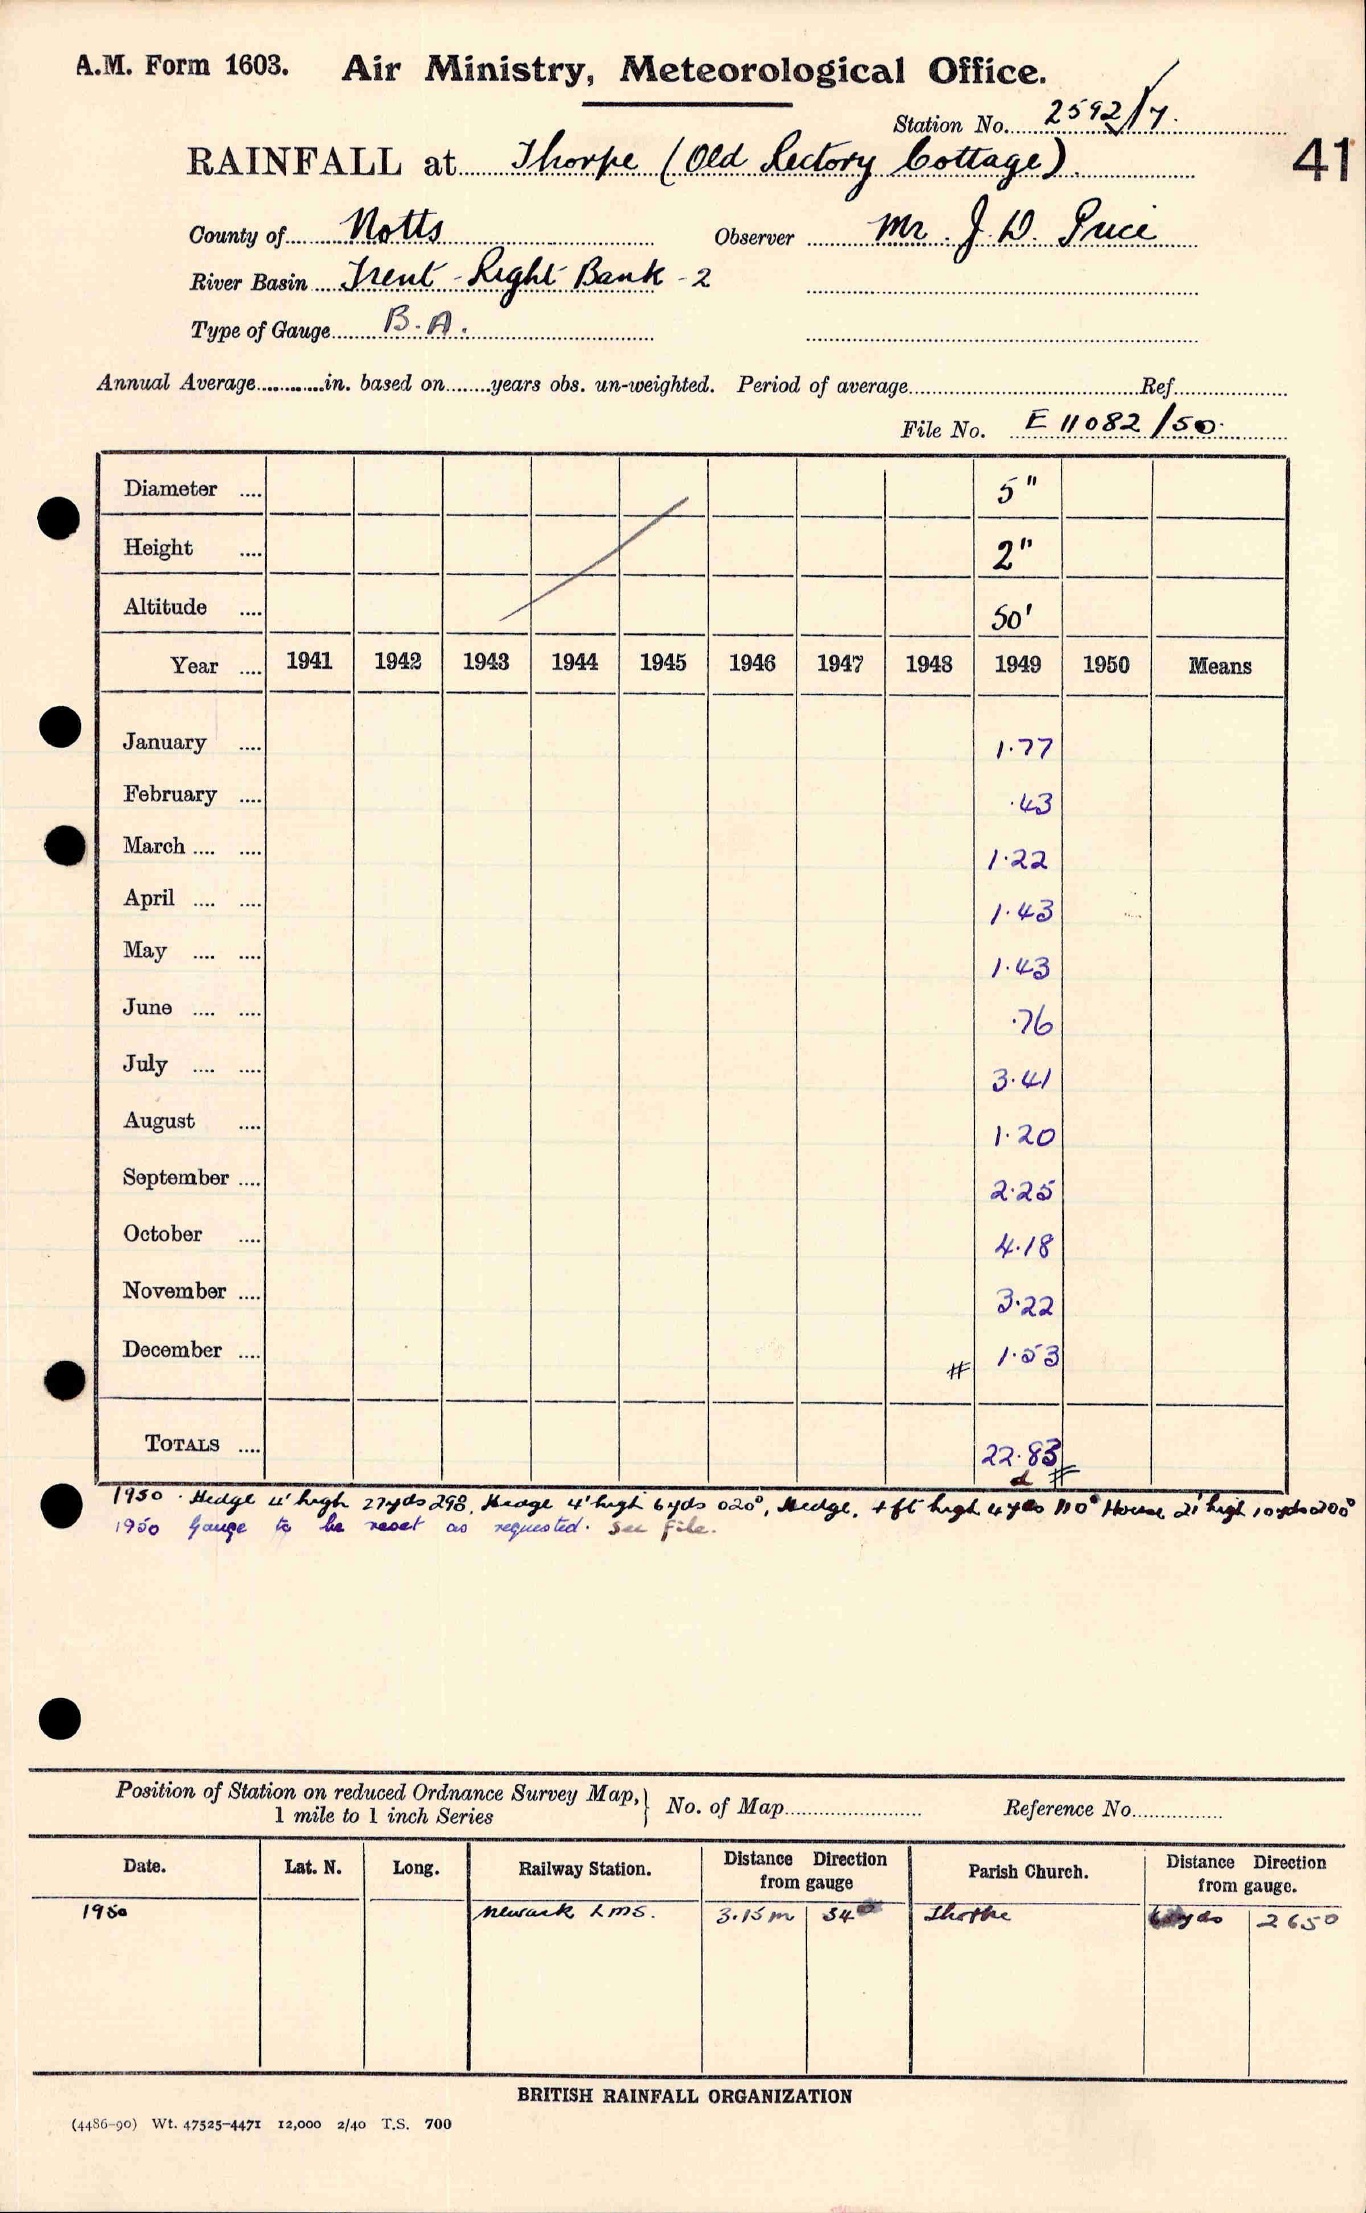 A.M. Form 1603. Air Ministry, Meteorological Office.
Station No. 2592/7.
41
RAINFALL at Thorpe (Old Rectory Cottage).
County of Notts Observer Mr. J. D. Price
River Basin Trent - Right Bank - 2
Type of Gauge B.A.
Annual Average............in. based on........years obs. un-weighted. Period of average........Ref........
File No. E 11082/50.
Diameter .... 5"
Height .... 2"
Altitude .... 50'
Year .... 1941 1942 1943 1944 1945 1946 1947 1948 1949 1950 Means
January .... 1.77
February .... .43
March .... .... 1.22
April .... .... 1.43
May .... .... 1.43
June .... .... .76
July .... .... 3.41
August .... 1.20
September .... 2.25
October .... 4.18
November .... 3.22
December .... # 1.53
TOTALS .... 22.83
d #
1950. Hedge 4' high 27yds 298, Hedge 4' high 6yds 020°, Hedge, 4 ft high 4yds 110° House 21' high 10yds 200°
1950 Gauge to be reset as requested. See File.
Position of Station on reduced Ordnance Survey Map, 1 mile to 1 inch Series } No. of Map........ Reference No........
Date. Lat. N. Long. Railway Station. Distance Direction from gauge Parish Church. Distance Direction from gauge.
1950 Newark LMS. 3.15m 34 Thorpe yds 265°
BRITISH RAINFALL ORGANIZATION
(4486-90) Wt. 47525-4471 12,000 2/40 T.S. 700